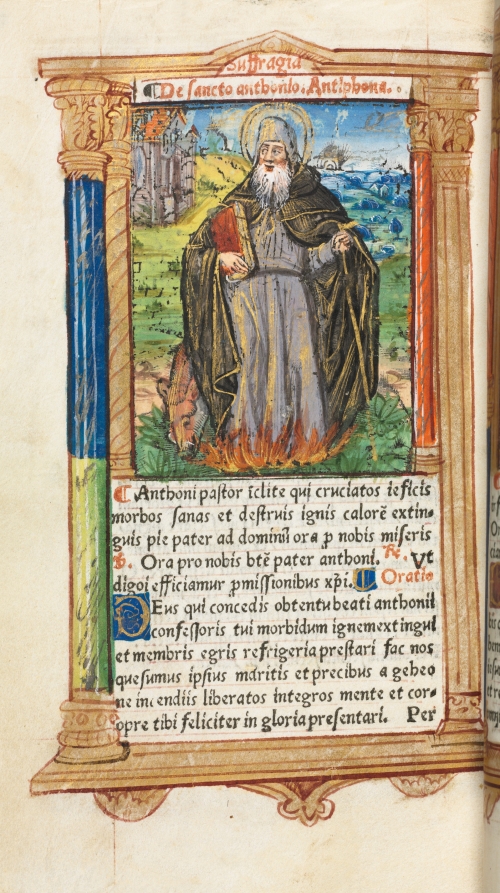 Suffragia
¶De sancto anthonio. Antiphona.
¶ Anthoni pastor īclite qui cruciatos īeficis
morbos sanas et destruis ignis calorē extin-
guis pie pater ad dominū ora ꝓ nobis miseris
℣. Ora pro nobis btē pater anthoni. ℟. Vt
digni efficiamur ꝓmissionibus xp̄i. ¶ Oratio
Deus qui concedis obtentu beati anthonii
confessoris tui morbidum ignem extingui
et membris egris refrigeria prestari fac nos
quesumus ipsius maritis et precibus a gehe-
ne incendiis liberatos integros mente et cor-
pore tibi feliciter in gloria presentari. Per